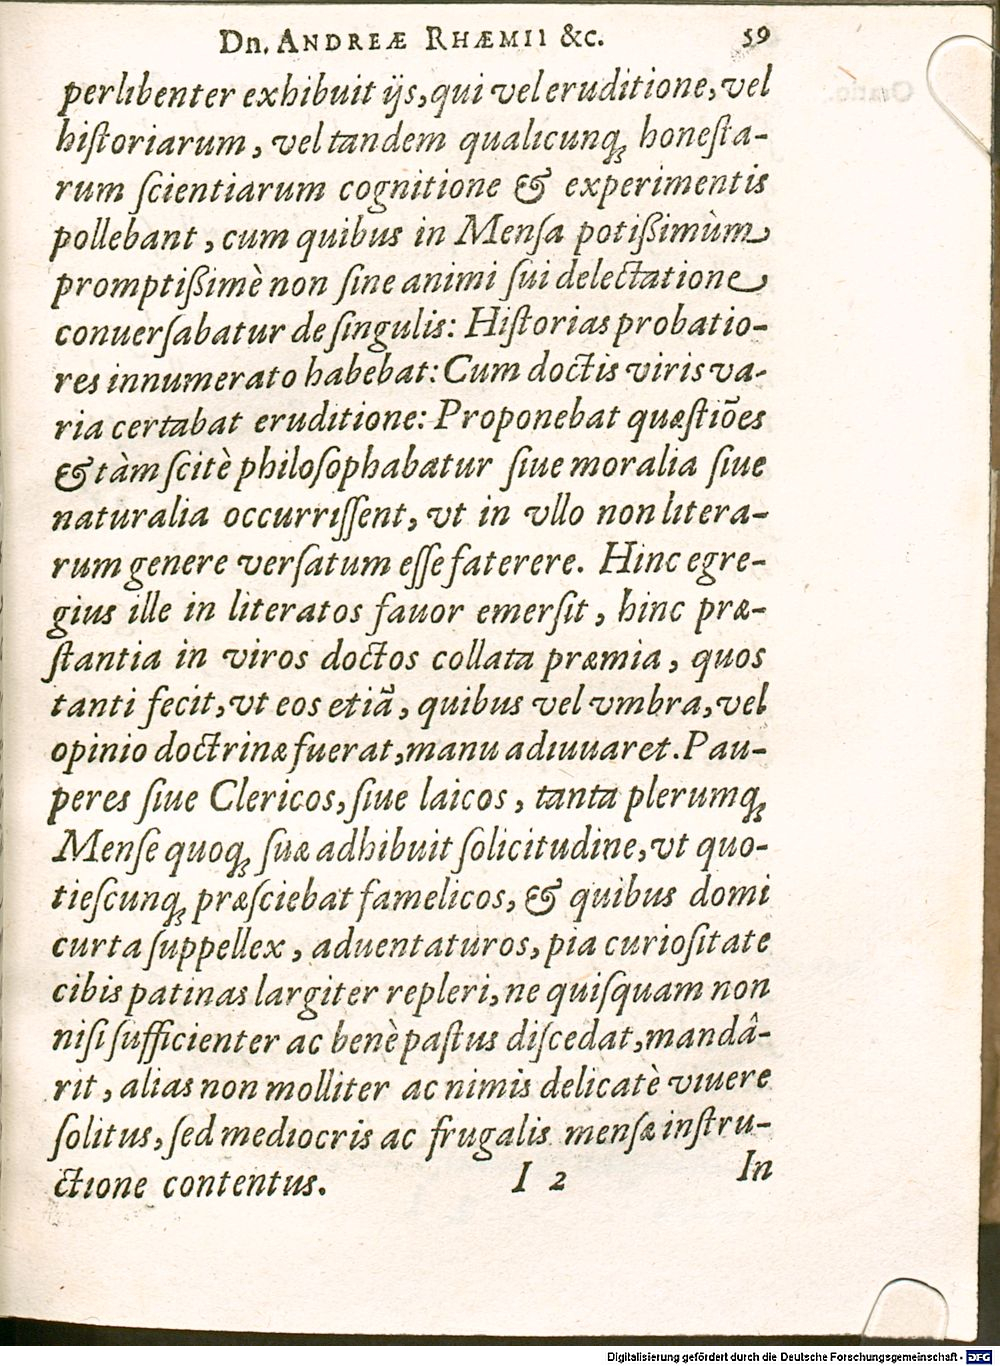 Dn. ANDREÆ RHÆMII &c. 59
perlibenter exhibuit ijs, qui vel eruditione, vel
hiſtoriarum, vel tandem qualicunq; honeſta-
rum ſcientiarum cognitione & experimentis
pollebant, cum quibus in Menſa potißimùm
promptißimè non ſine animi ſui delectatione
conuerſabatur de ſingulis: Hiſtorias probatio-
res innumerato habebat: Cum doctis viris va-
ria certabat eruditione: Proponebat quæſtiōes
& tàm ſcitè philoſophabatur ſiue moralia ſiue
naturalia occurriſſent, vt in vllo non litera-
rum genere verſatum eſſe faterere. Hinc egre-
gius ille in literatos fauor emerſit, hinc præ-
ſtantia in viros doctos collata præmia, quos
tanti fecit, vt eos etiā, quibus vel vmbra, vel
opinio doctrinæ fuerat, manu adiuuaret. Pau-
peres ſiue Clericos, ſiue laicos, tanta plerumq;
Menſe quoq; ſuæ adhibuit ſolicitudine, vt quo-
tieſcunq; præſciebat famelicos, & quibus domi
curta ſuppellex, aduentaturos, pia curioſitate
cibis patinas largiter repleri, ne quiſquam non
niſi ſufficienter ac benè paſtus diſcedat, mandâ-
rit, alias non molliter ac nimis delicatè viuere
ſolitus, ſed mediocris ac frugalis menſæ inſtru-
ctione contentus. I 2 In
Digitalisierung gefördert durch die Deutsche Forschungsgemeinschaft - DFG